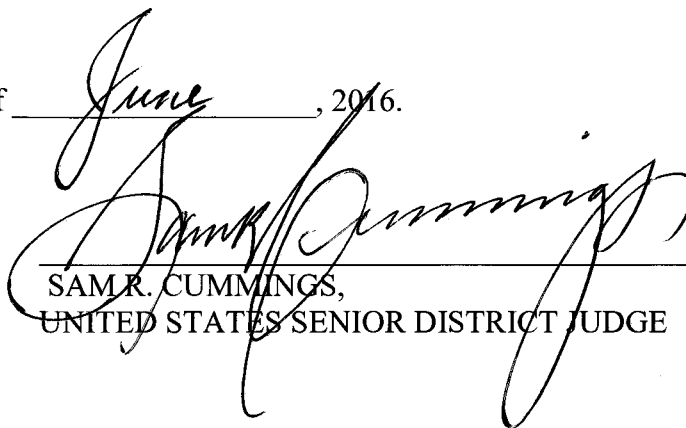 f June, 2016.
Sam R Cummings
SAM R. CUMMINGS,
UNITED STATES SENIOR DISTRICT JUDGE